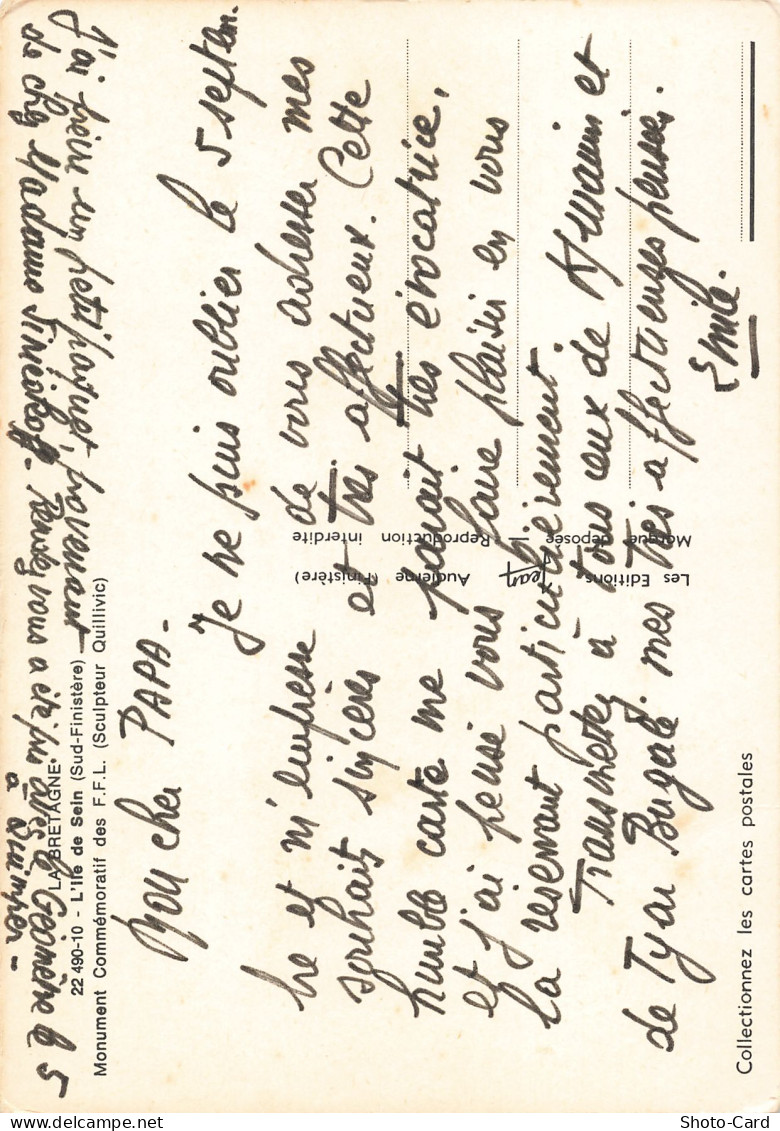 J'ai reçu un petit paquet, provenant
de chez Madame
Rendez vous a été pris avec le Géomètre le 5
à Quimper -
LA BRETAGNE
22 490-10 - L'Ile de Sein (Sud-Finistère)
Monument Commémoratif des F.F.L. (Sculpteur Quillivic)
Mon cher PAPA -
Je ne puis oublier le 5 septem
bre et m'empresse de vous adresser mes
souhaits sincères et très affectueux. Cette
humble carte me parait très évocatrice,
et j'ai pensé vous faire plaisir en vous
la réservant particulièrement.
Transmettez à tous ceux de Kerurains et
de Ty ar Bugale mes très affectueuses pensées.
Emile.
Les Editions Jean Audierne (Finistère)
Marque déposée Reproduction interdite
Collectionnez les cartes postales
Shoto-Card